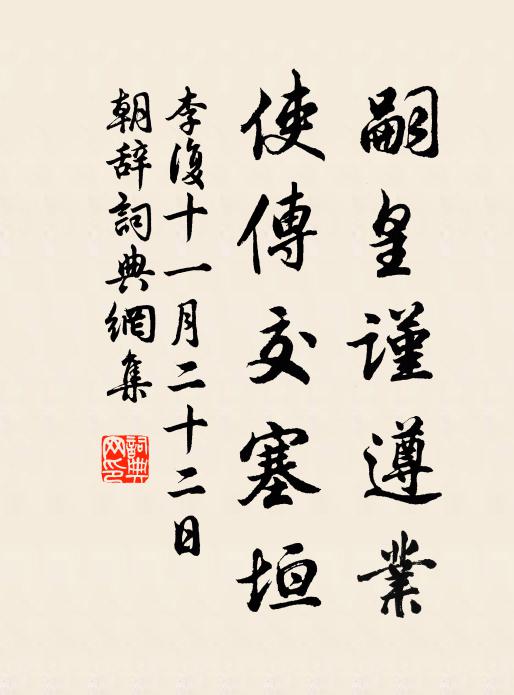 嗣皇謹遵業
使傳交塞垣
李復十一月二十二日
朝辞詞典網集
詞典网印